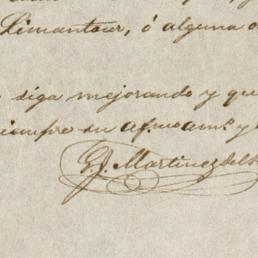 Limantour, ó alguna o
siga mejorando y que
siempre su af.mo am.º y
G. J. Martinez del